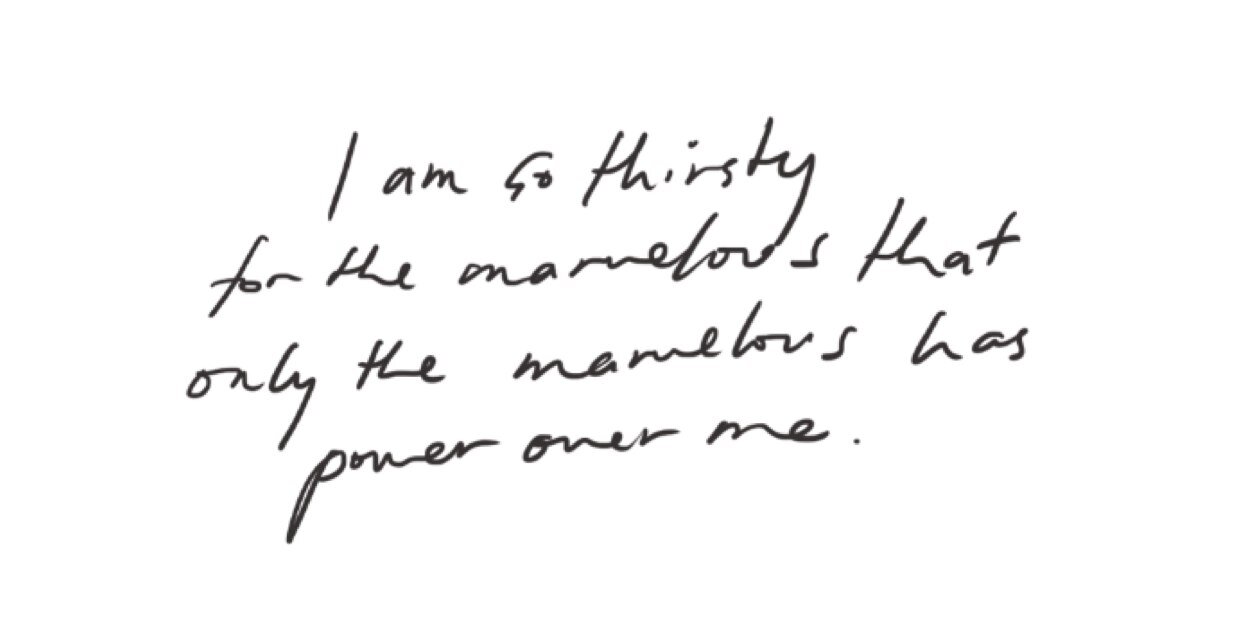 I am so thirsty
for the marvelous that
only the marvelous has
power over me.